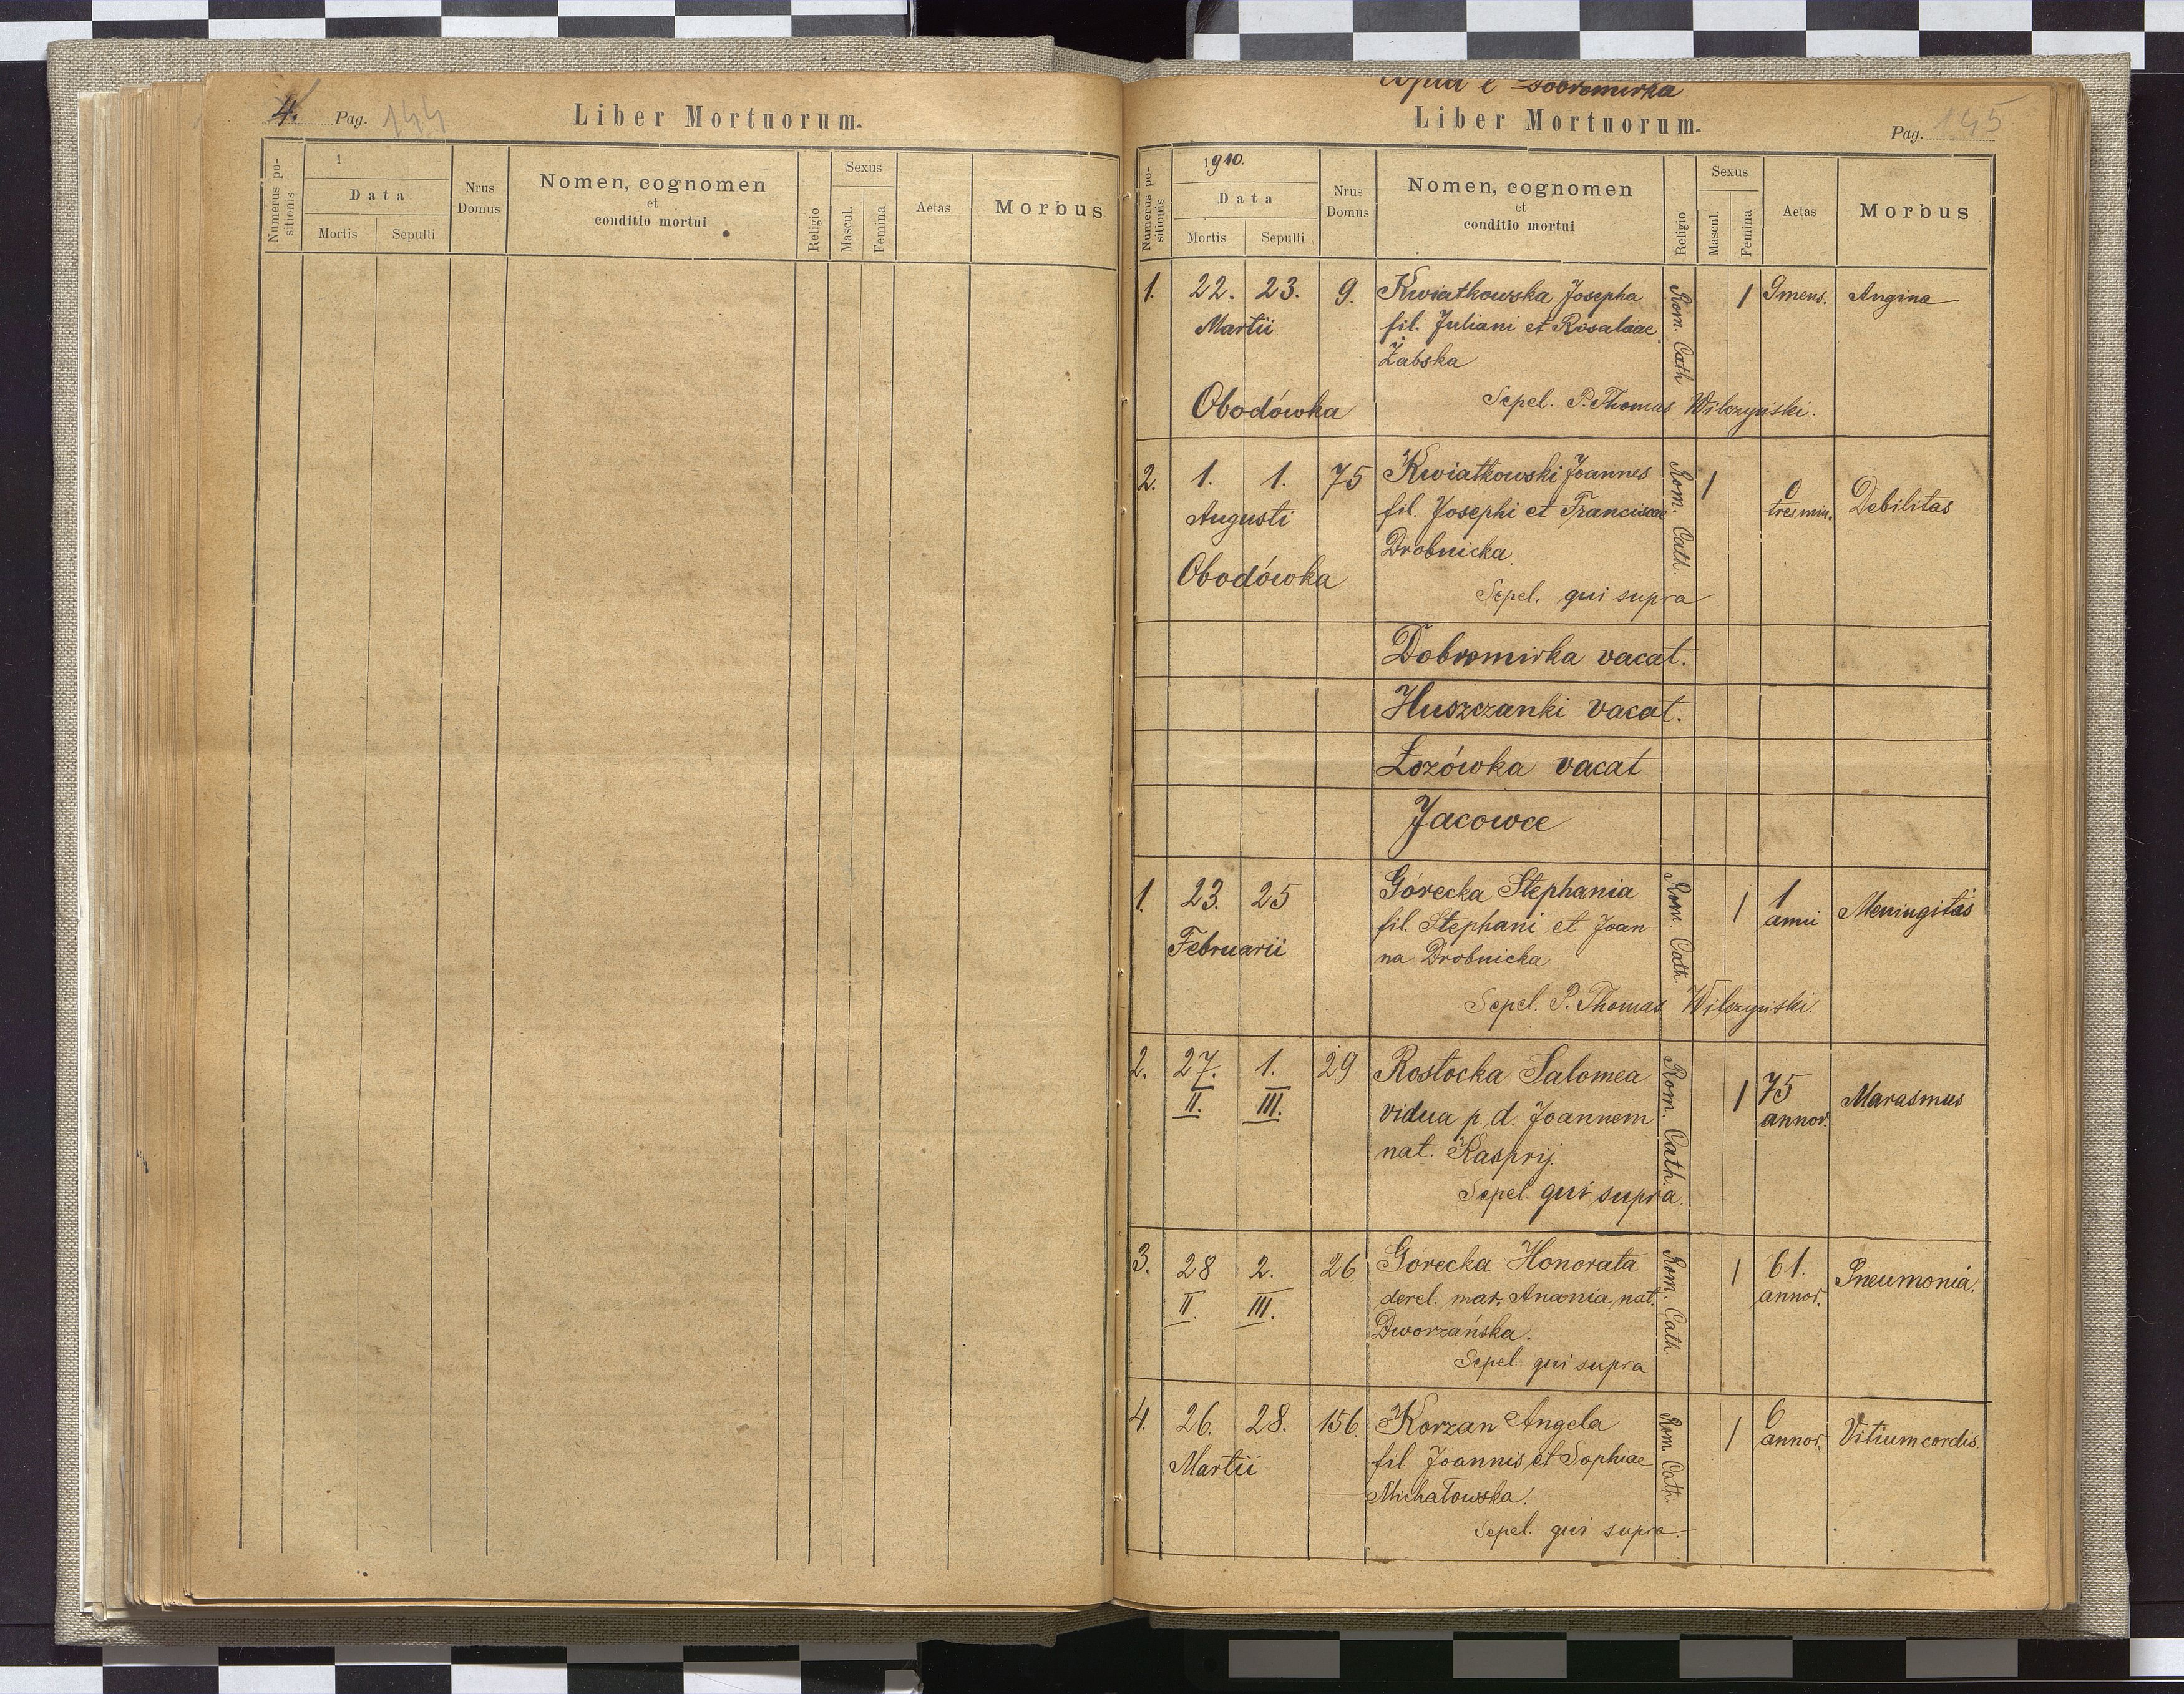 4. Pag. 144
Liber Mortuorum.
Numerus positionis
1
Data
Mortis Sepulti
Nrus Domus
Nomen, cognomen
et
conditio mortui
Religio
Sexus
Mascul. Femina
Aetas
Morbus
Copia e Dobromirka
Liber Mortuorum.
Pag. 145
Numerus positionis
1910.
Data
Mortis Sepulti
Nrus Domus
Nomen, cognomen
et
conditio mortui
Religio
Sexus
Mascul. Femina
Aetas
Morbus
1. 22. 23. 9. Kwiatkowska Josepha Rom. Cath 1 9 mens. Angina
Martii fil. Juliani et Rosaliae
Żabska
Obodówka Sepel. P. Thomas Wilczyński.
2. 1. 1. 75 Kwiatkowski Joannes Rom. Cath. 1 0 Debilitas
Augusti fil. Josephi et Franciscae tres min.
Drobnicka.
Obodówka
Sepel. qui supra
Dobromirka vacat.
Huszczanki vacat.
Łozówka vacat
Jacowce
1. 23. 25 Górecka Stephania Rom. Cath. 1 1 Meningitis
Februarii fil. Stephani et Joan anni
na Drobnicka
Sepel. P. Thomas Wilczyński.
2. 27. 1. 29 Rostocka Salomea Rom. Cath. 1 75 Marasmus
II. III. vidua p. d. Joannem annor.
nat. Kasprij.
Sepel. qui supra.
3. 28 2. 26. Gorecka Honorata Rom. Cath 1 61. Pneumonia.
II. III. derel. mar. Anania, nat. annor.
Dworzańska.
Sepel. qui supra
4. 26. 28. 156. Korzan Angela Rom. Cath. 1 6 Vitium cordis.
Martii fil. Joannis et Sophiae annor.
Michałowska.
Sepel. qui supra.